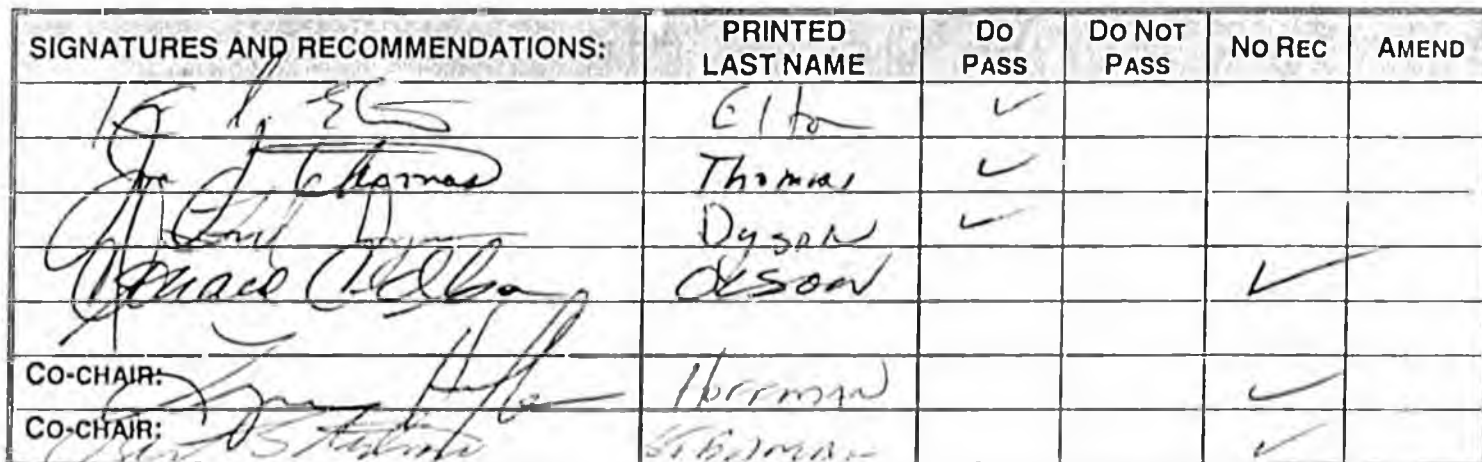 SIGNATURES AND RECOMMENDATIONS: PRINTED LAST NAME DO PASS DO NOT PASS NO REC AMEND
Elton ✓
Thomas Thomas ✓
Dyson ✓
Donald Olson Olson ✓
CO-CHAIR: Hoffman ✓
CO-CHAIR: Stedman ✓